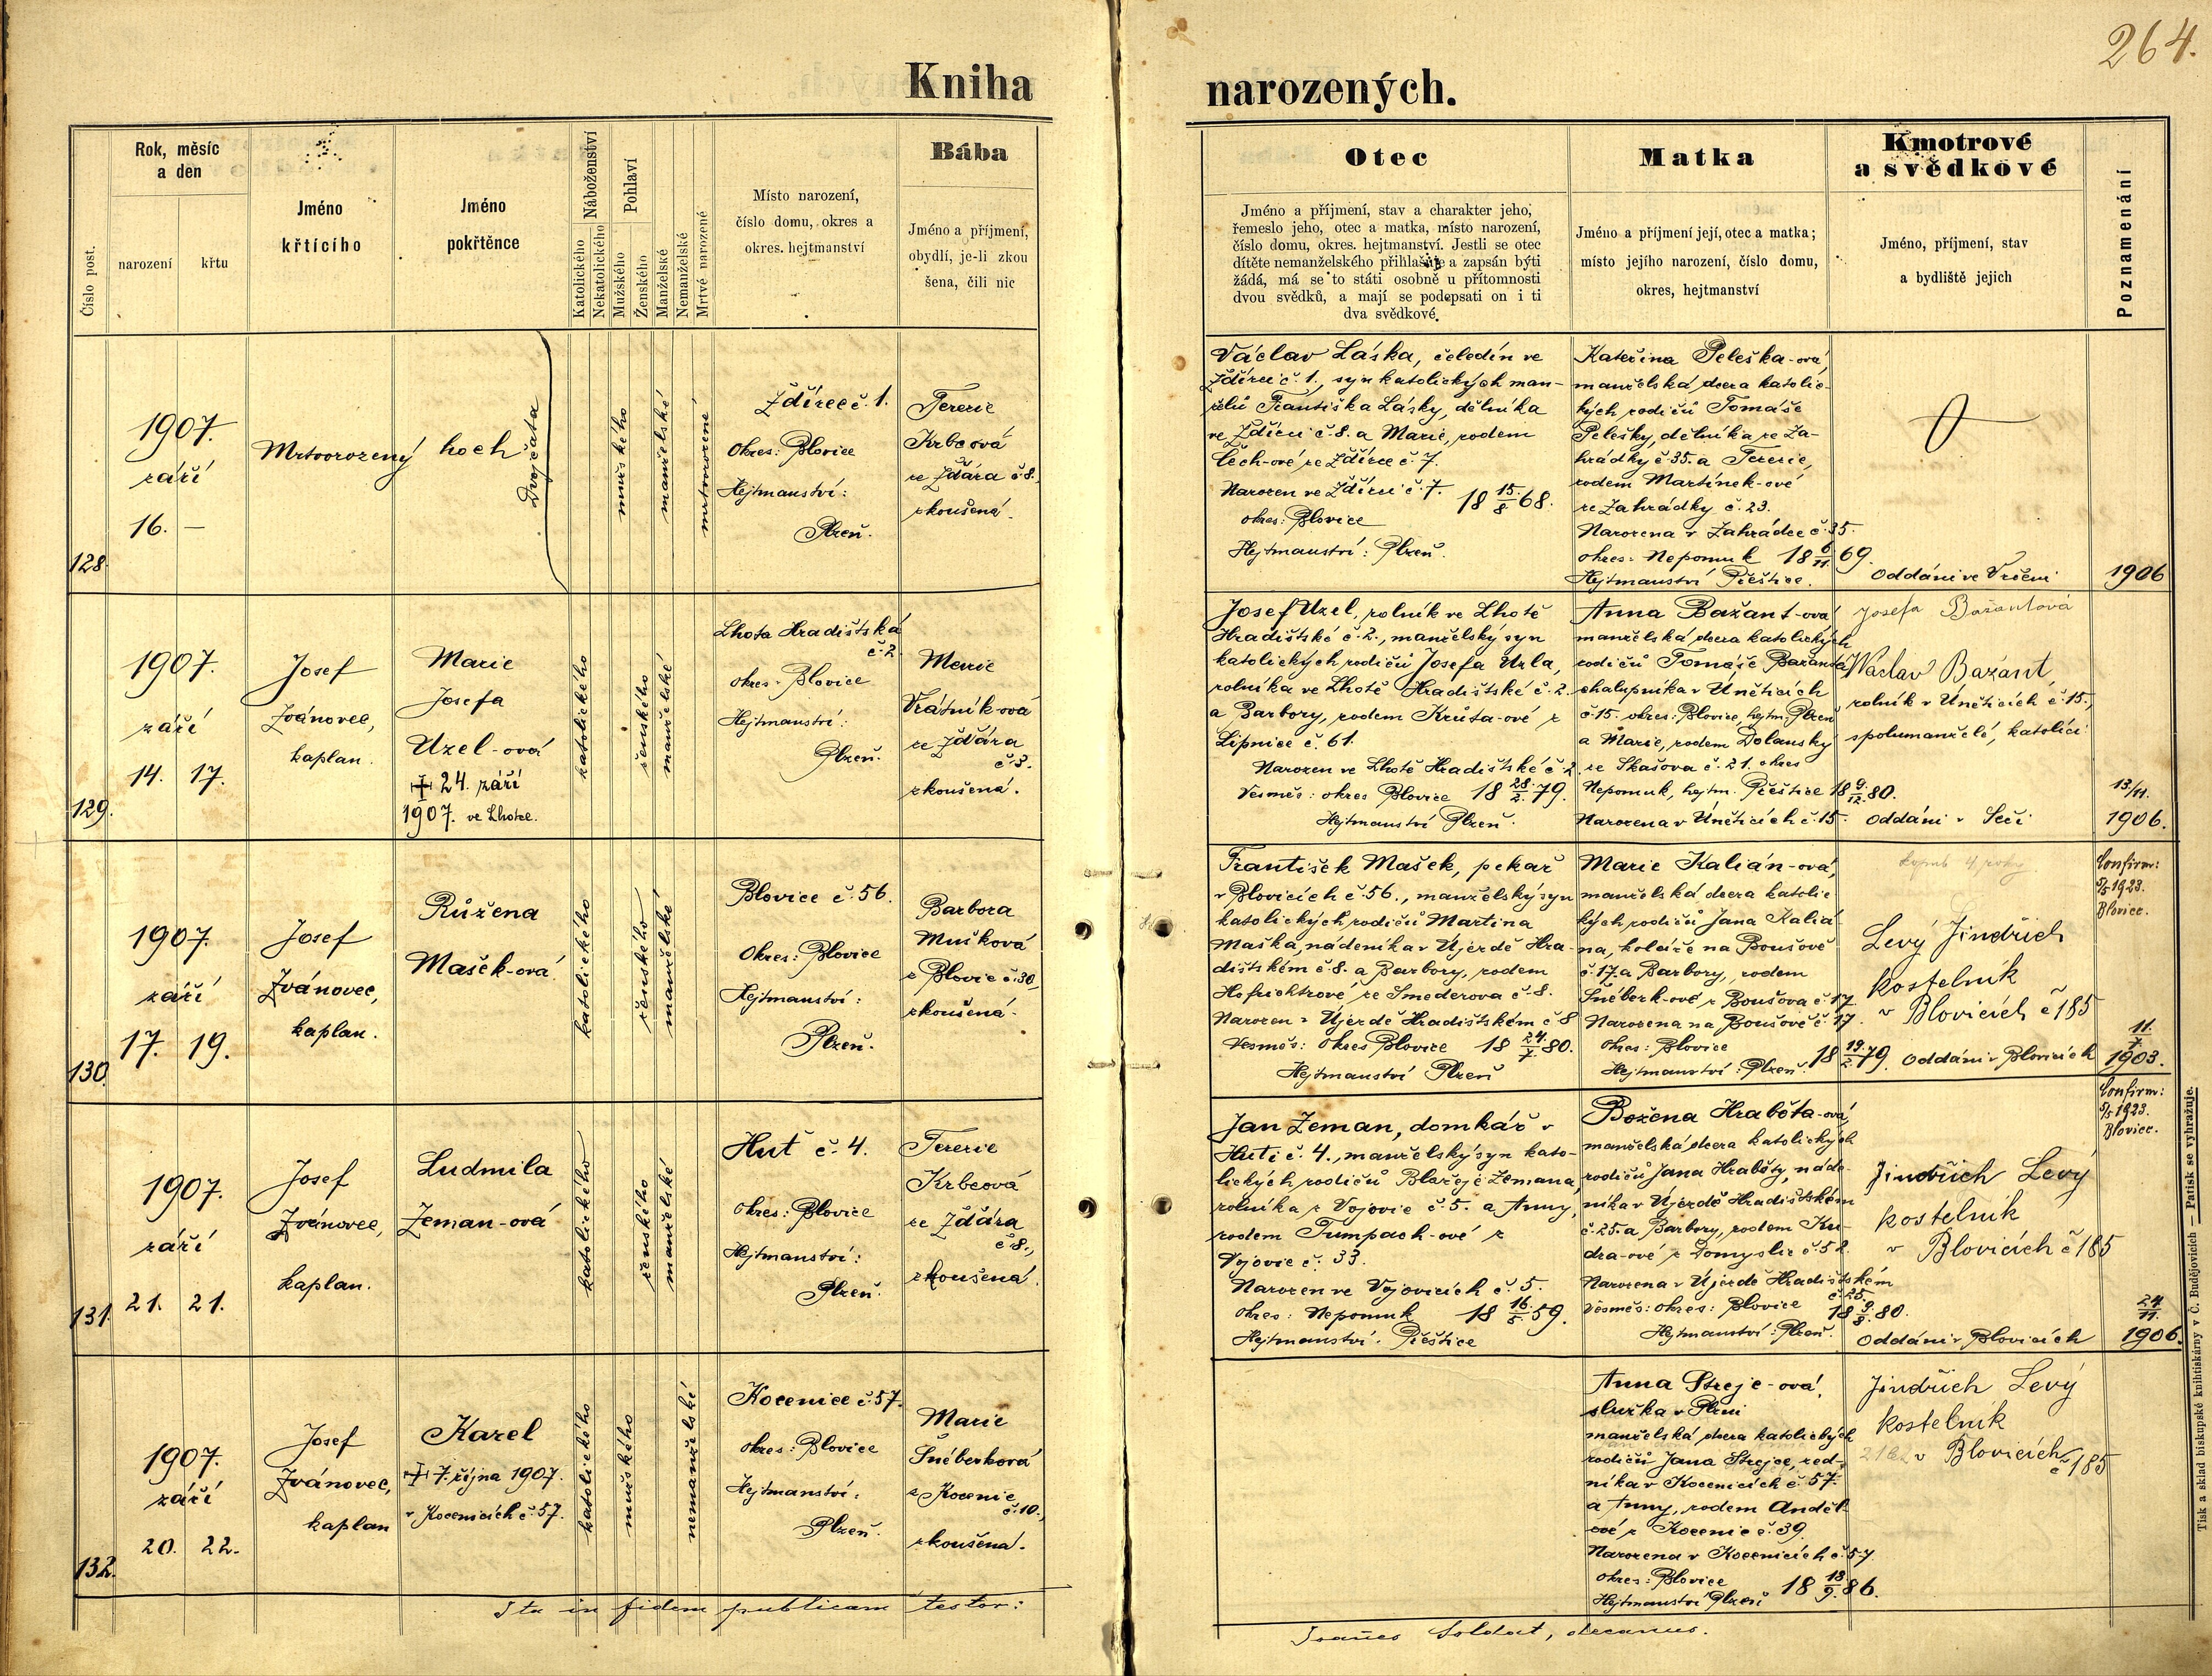 264.
Kniha narozených.
Číslo post.
Rok, měsíc
a den
narození
křtu
Jméno
křtícího
Jméno
pokřtěnce
Náboženství
Katolického
Nekatolického
Pohlaví
Mužského
Ženského
Manželské
Nemanželské
Mrtvé narozené
Místo narození,
číslo domu, okres a
okres. hejtmanství
Bába
Jméno a příjmení,
obydlí, je-li zkou
šena, čili nic
Otec
Jméno a příjmení, stav a charakter jeho,
řemeslo jeho, otec a matka, místo narození,
číslo domu, okres. hejtmanství. Jestli se otec
dítěte nemanželského přihlašuje a zapsán býti
žádá, má se to státi osobně u přítomnosti
dvou svědků, a mají se podepsati on i ti
dva svědkové.
Matka
Jméno a příjmení její, otec a matka;
místo jejího narození, číslo domu,
okres, hejtmanství
Kmotrové
a svědkové
Jméno, příjmení, stav
a bydliště jejich
Poznamenání
128.
1907.
září
16. —
Mrtvorozený hoch
Dvojčata
mužského
manželské
mrtvorozené
Ždírec č. 1.
Okres: Blovice
Hejtmanství:
Plzeň.
Terezie
Krbcová
ze Ždára č. 8.,
zkoušená.
Václav Láska, čeledín ve
Ždírci č. 1., syn katolických man-
želů Františka Lásky, dělníka
ve Ždírci č. 8. a Marie, rodem
Čech-ové ze Ždírce č. 7.
Narozen ve Ždírci č. 7. 18 15/8 68.
okres: Blovice
Hejtmanství: Plzeň.
Kateřina Peleška-ová,
manželská dcera katolic-
kých rodičů Tomáše
Pelešky, dělníka ze Za-
hrádky č. 35. a Terezie,
rodem Martínek-ové
ze Zahrádky č. 23.
Narozena v Zahrádce č. 35.
okres: Nepomuk 18 6/11 69.
Hejtmanství Přeštice.
Oddáni ve Vrčeni
1906
129.
1907.
září
14. 17.
Josef
Ivánovec,
kaplan.
Marie
Josefa
Uzel-ová
+ 24. září
1907. ve Lhotce.
katolického
ženského
manželské
Lhota Hradištská
č. 2
okres: Blovice
Hejtmanství:
Plzeň.
Marie
Vrátník-ová
ze Ždára
č. 3.
zkoušená.
Josef Uzel, rolník ve Lhotě
Hradištské č. 2., manželský syn
katolických rodičů Josefa Uzla,
rolníka ve Lhotě Hradištské č. 2.
a Barbory, rodem Krůta-ové z
Lipnice č. 61.
Narozen ve Lhotě Hradištské č. 2.
Vesměs: okres Blovice 18 28/2 79.
Hejtmanství Plzeň.
Anna Bažant-ová
manželská dcera katolických
rodičů Tomáše Bažanta
chalupníka v Únětících
č. 15. okres: Blovice, hejtm. Plzeň
a Marie, rodem Dolanský
ze Skašova č. 21. okres
Nepomuk, hejtm. Přeštice 18 9/12 80.
Narozena v Únětících č. 15.
Josefa Bažantová
Václav Bažant,
rolník v Únětících č. 15.,
spolumanželé, katolíci
Oddáni v Seči
13/11.
1906.
130.
1907.
září
17. 19.
Josef
Ivánovec,
kaplan.
Růžena
Mašek-ová
katolického
ženského
manželské
Blovice č. 56.
Okres: Blovice
Hejtmanství:
Plzeň.
Barbora
Mušková
z Blovic č. 30,
zkoušená.
František Mašek, pekař
v Blovicích č. 56., manželský syn
katolických rodičů Martina
Maška, nádeníka v Újezdě Hra-
dištském č. 8. a Barbory, rodem
Hofrichtrové ze Smederova č. 8.
Narozen v Újezdě Hradištském č. 8
Vesměs: okres Blovice 18 24/7 80.
Hejtmanství Plzeň
Marie Kalián-ová,
manželská dcera katolic-
kých rodičů Jana Kaliá-
na, koláře na Boušově
č. 17. a Barbory, rodem
Šnéberk-ové z Boušova č. 17.
Narozena na Boušově č. 17.
Okres: Blovice
Hejtmanství: Plzeň. 18 19/2 79.
Levý Jindřich
kostelník
v Blovicích č 185
Oddáni v Blovicích
Confirm:
5/5 1923.
Blovice.
11./7
1903.
131.
1907.
září
21. 21.
Josef
Ivánovec,
kaplan.
Ludmila
Zeman-ová
katolického
ženského
manželské
Huť č. 4.
okres: Blovice
Hejtmanství:
Plzeň.
Terezie
Krbcová
ze Ždára
č. 8.,
zkoušená.
Jan Zeman, domkář v
Huti č. 4., manželský syn kato-
lických rodičů Blažeje Zemana,
rolníka z Vojovic č. 5. a Anny,
rodem Tumpach-ové z
Vojovic č. 33.
Narozen ve Vojovicích č. 5.
Okres: Nepomuk 18 16/5 59.
Hejtmanství: Přeštice
Božena Hrabšta-ová,
manželská dcera katolických
rodičů Jana Hrabšty, náde-
níka v Újezdě Hradištském
č. 25. a Barbory, rodem Ku-
dra-ové z Domyslic č. 52.
Narozena v Újezdě Hradištském
č. 25.
Vesměs: okres: Blovice 18 9/8 80.
Hejtmanství: Plzeň.
Jindřich Levý
kostelník
v Blovicích č 185
Oddáni v Blovicích
Confirm:
5/5 1923.
Blovice.
24/11.
1906.
132.
1907.
září
20. 22.
Josef
Ivánovec,
kaplan
Karel
+ 7. října 1907.
v Kocenicích č. 57.
katolického
mužského
nemanželské
Kocenice č. 57.
okres: Blovice
Hejtmanství:
Plzeň.
Marie
Šnéberková
z Kocenic
č. 10.,
zkoušená.
Anna Strejc-ová,
služka v Plzni
manželská dcera katolických
rodičů Jana Strejce, zed-
níka v Kocenicích č. 57.
a Anny, rodem Anděl-
ové z Kocenic č. 39.
Narozena v Kocenicích č. 57.
okres: Blovice
Hejtmanství Plzeň 18 13/9 86.
Jindřich Levý
kostelník
v Blovicích
č 185
Ita in fidem publicam testor:
Soldat, decanus.
Tisk a sklad biskupské knihtiskárny v Č. Budějovicích — Patisk se vyhražuje.